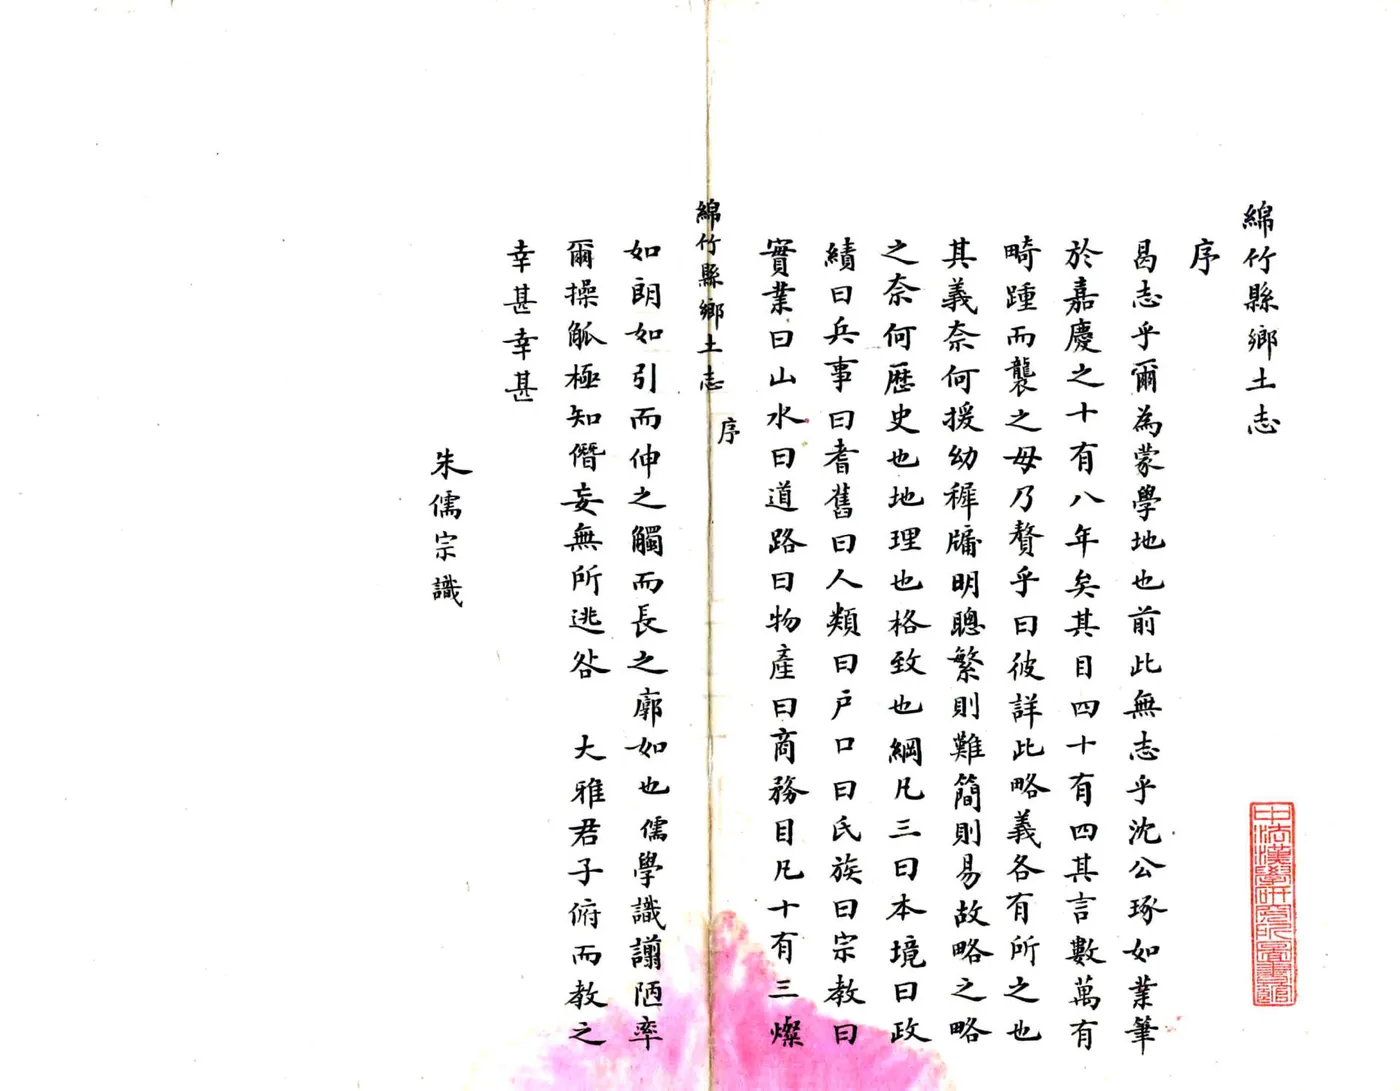 綿竹縣鄉土志
序
曷志乎爾為蒙學地也前此無志乎沈公琢如業筆
於嘉慶之十有八年矣其目四十有四其言數萬有
畸踵而襲之毋乃贅乎曰彼詳此略義各有所之也
其義奈何援幼穉牖明聰繁則難簡則易故略之略
之奈何歷史也地理也格致也綱凡三曰本境曰政
績曰兵事曰耆舊曰人類曰戶口曰氏族曰宗教曰
實業曰山水曰道路曰物產曰商務目凡十有三燦
綿竹縣鄉土志
序
如朗如引而伸之觸而長之廓如也儒學識謭陋率
爾操觚極知僭妄無所逃咎 大雅君子俯而教之
幸甚幸甚
朱儒宗識
中法漢學研究所圖書館